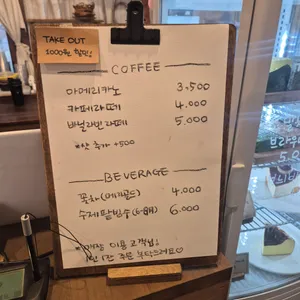 TAKE OUT
1000원 할인!
COFFEE
아메리카노 3.500
카페라떼 4.000
바닐라빈라떼 5.000
*샷 추가 +500
BEVERAGE
꽃차(메리골드) 4.000
수제팥빙수(6-8月) 6.000
이용 고객님!
1인 1잔 주문 부탁드려요♡